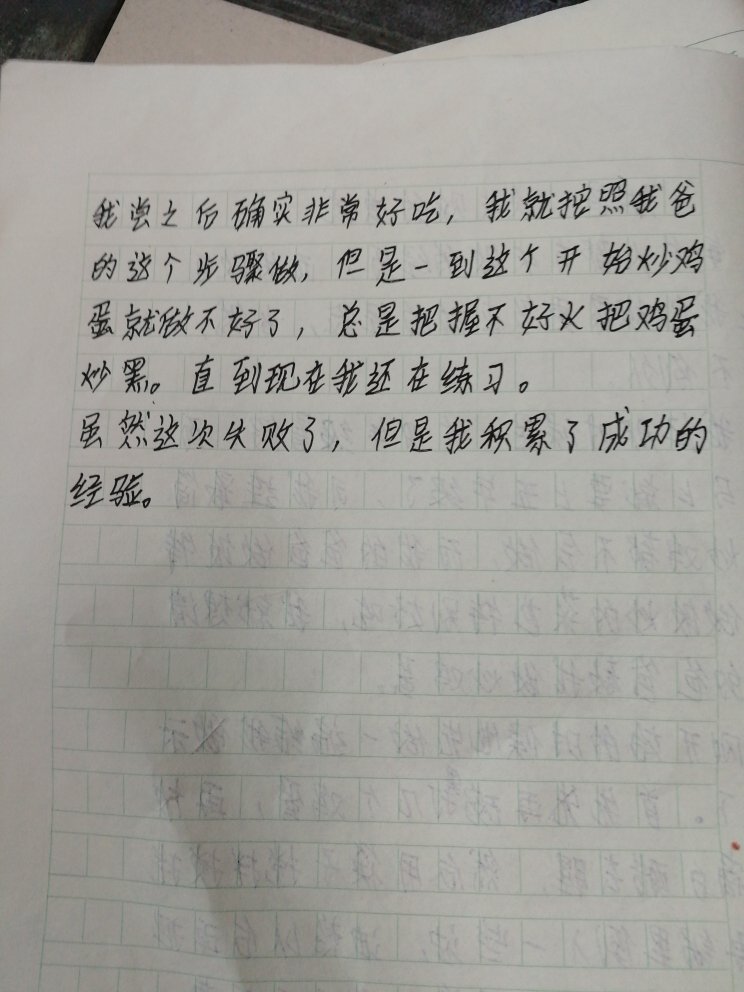 我尝之后确实非常好吃，我就按照我爸
的这个步骤做，但是一到这个开始炒鸡
蛋就做不好了，总是把握不好火把鸡蛋
炒黑。直到现在我还在练习。
虽然这次失败了，但是我积累了成功的
经验。